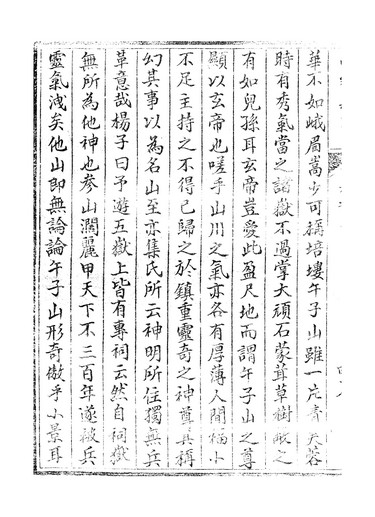 華不如峨眉嵩少可稱培塿午子山雖一片青芙蓉
時有秀氣當之諸嶽不過掌大頑石蒙茸草樹眡之
有如兒孫耳玄帝豈愛此盈尺地而謂午子山之尊
顯以玄帝也嗟乎山川之氣亦各有厚薄人間褔小
不足主持之不得已歸之於鎮重靈奇之神蓋其稱
幻其事以為名山至亦集氏所云神明所住獨無兵
革意哉楊子曰予遊五嶽上皆有專祠云然自祠嶽
無所為他神也參山濶麗甲天下不三百年遂被兵
靈氣洩矣他山即無論論午子山形奇傲乎小景耳